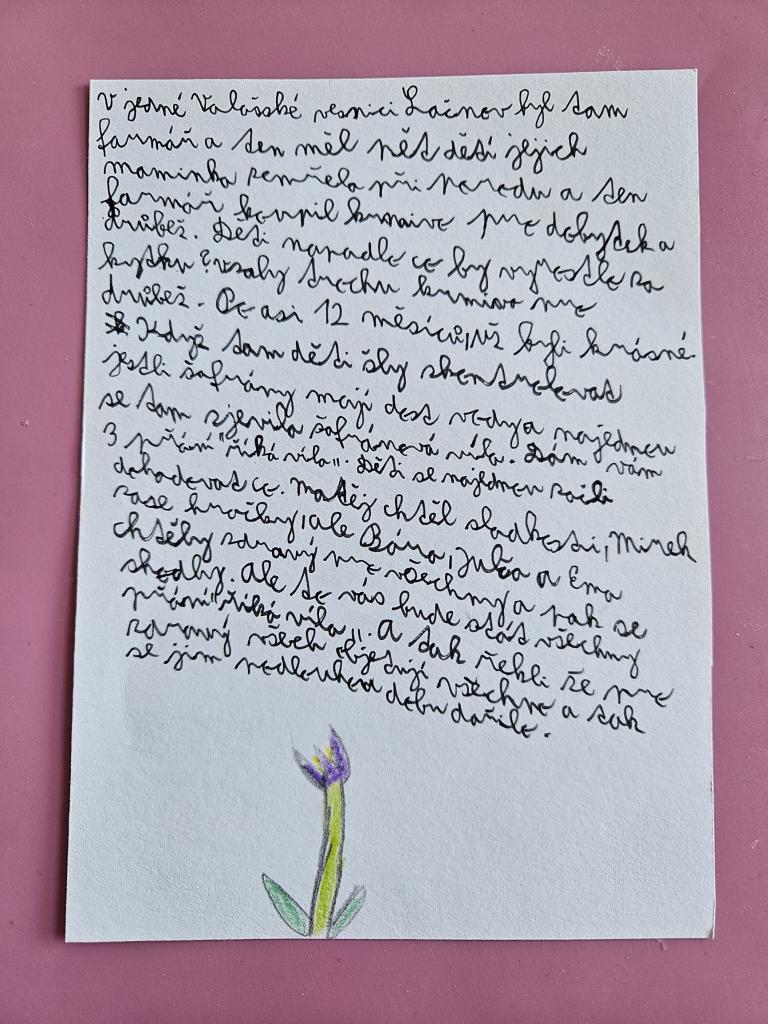 V jedné Valašské vesnici Lačnov byl tam
farmář a ten měl pět dětí jejich
maminka zemřela při porodu a ten
farmář koupil krmivo pro dobytek a
drůbež. Děti napadlo co by vyrostlo za
kytku? vzaly trochu krmivo pro
drůbež. Po asi 12 měsíců, již byli krásné.
Když tam děti šly skontrolovat
jestli šafrány mají dost vody a najednou
se tam zjevila šafránová víla. Dám vám
3 přání "říká víla". Děti se najednou začli
dohadovat co. Matěj chtěl sladkosti, Mirek
zase hračky, ale Bára, Julča a Ema
chtěly zdravý pro všechny a pak se
shodly. Ale to vás bude stát všechny
přání "říká víla". A tak řekli že pro
zdravý všech objetují všechno a tak
se jim nedlouhou dobu dařilo.